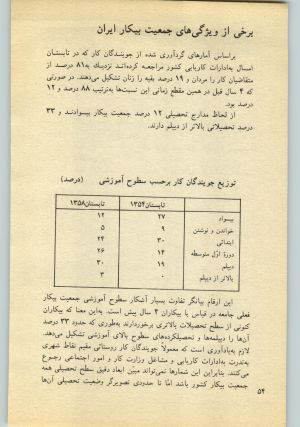 برخی از ویژگی‌های جمعیت بیکار ایران
براساس آمارهای گردآوری شده از جویندگان کار که در تابستان
امسال به‌ادارات کاریابی کشور مراجعه کرده‌اند نزدیک به ۸۱ درصد از
متقاضیان کار را مردان و ۱۹ درصد بقیه را زنان تشکیل می‌دهند. در صورتی
که ۴ سال قبل در همین مقطع زمانی این نسبت‌ها به‌ترتیب ۸۸ درصد و ۱۲
درصد بود.
از لحاظ مدارج تحصیلی ۱۲ درصد جمعیت بیکار بیسوادند و ۳۳
درصد تحصیلاتی بالاتر از دیپلم دارند.
توزیع جویندگان کار برحسب سطوح آموزشی (درصد)
تابستان ۱۳۵۴ تابستان ۱۳۵۸
بیسواد ۲۷ ۱۲
خواندن و نوشتن ۹ ۵
ابتدائی ۳۰ ۲۴
دورهٔ اوّل متوسطه ۱۴ ۲۶
دیپلم ۱۹ ۳۰
بالاتر از دیپلم ۰ ۳
این ارقام بیانگر تفاوت بسیار آشکار سطوح آموزشی جمعیت بیکار
فعلی جامعه در قیاس با بیکاران ۴ سال پیش است. به‌این معنا که بیکاران
کنونی از سطح تحصیلات بالاتری برخوردارند به‌طوری که حدود ۳۳ درصد
آن‌ها را دیپلمه‌ها و تحصیلکرده‌های سطوح بالای آموزشی تشکیل می‌دهند.
لازم به‌یادآوری است که معمولاً جویندگان کار روستائی مقیم نقاط شهری
به‌ندرت به‌ادارات کاریابی و مشاغل وزارت کار و امور اجتماعی رجوع
می‌کنند. بنابراین این شمارها نمی‌تواند مبیّن ابعاد دقیق سطح تحصیلی همه
جمعیت بیکار کشور باشد امّا تا حدودی تصویرگر وضعیت تحصیلی آن‌ها
۵۴